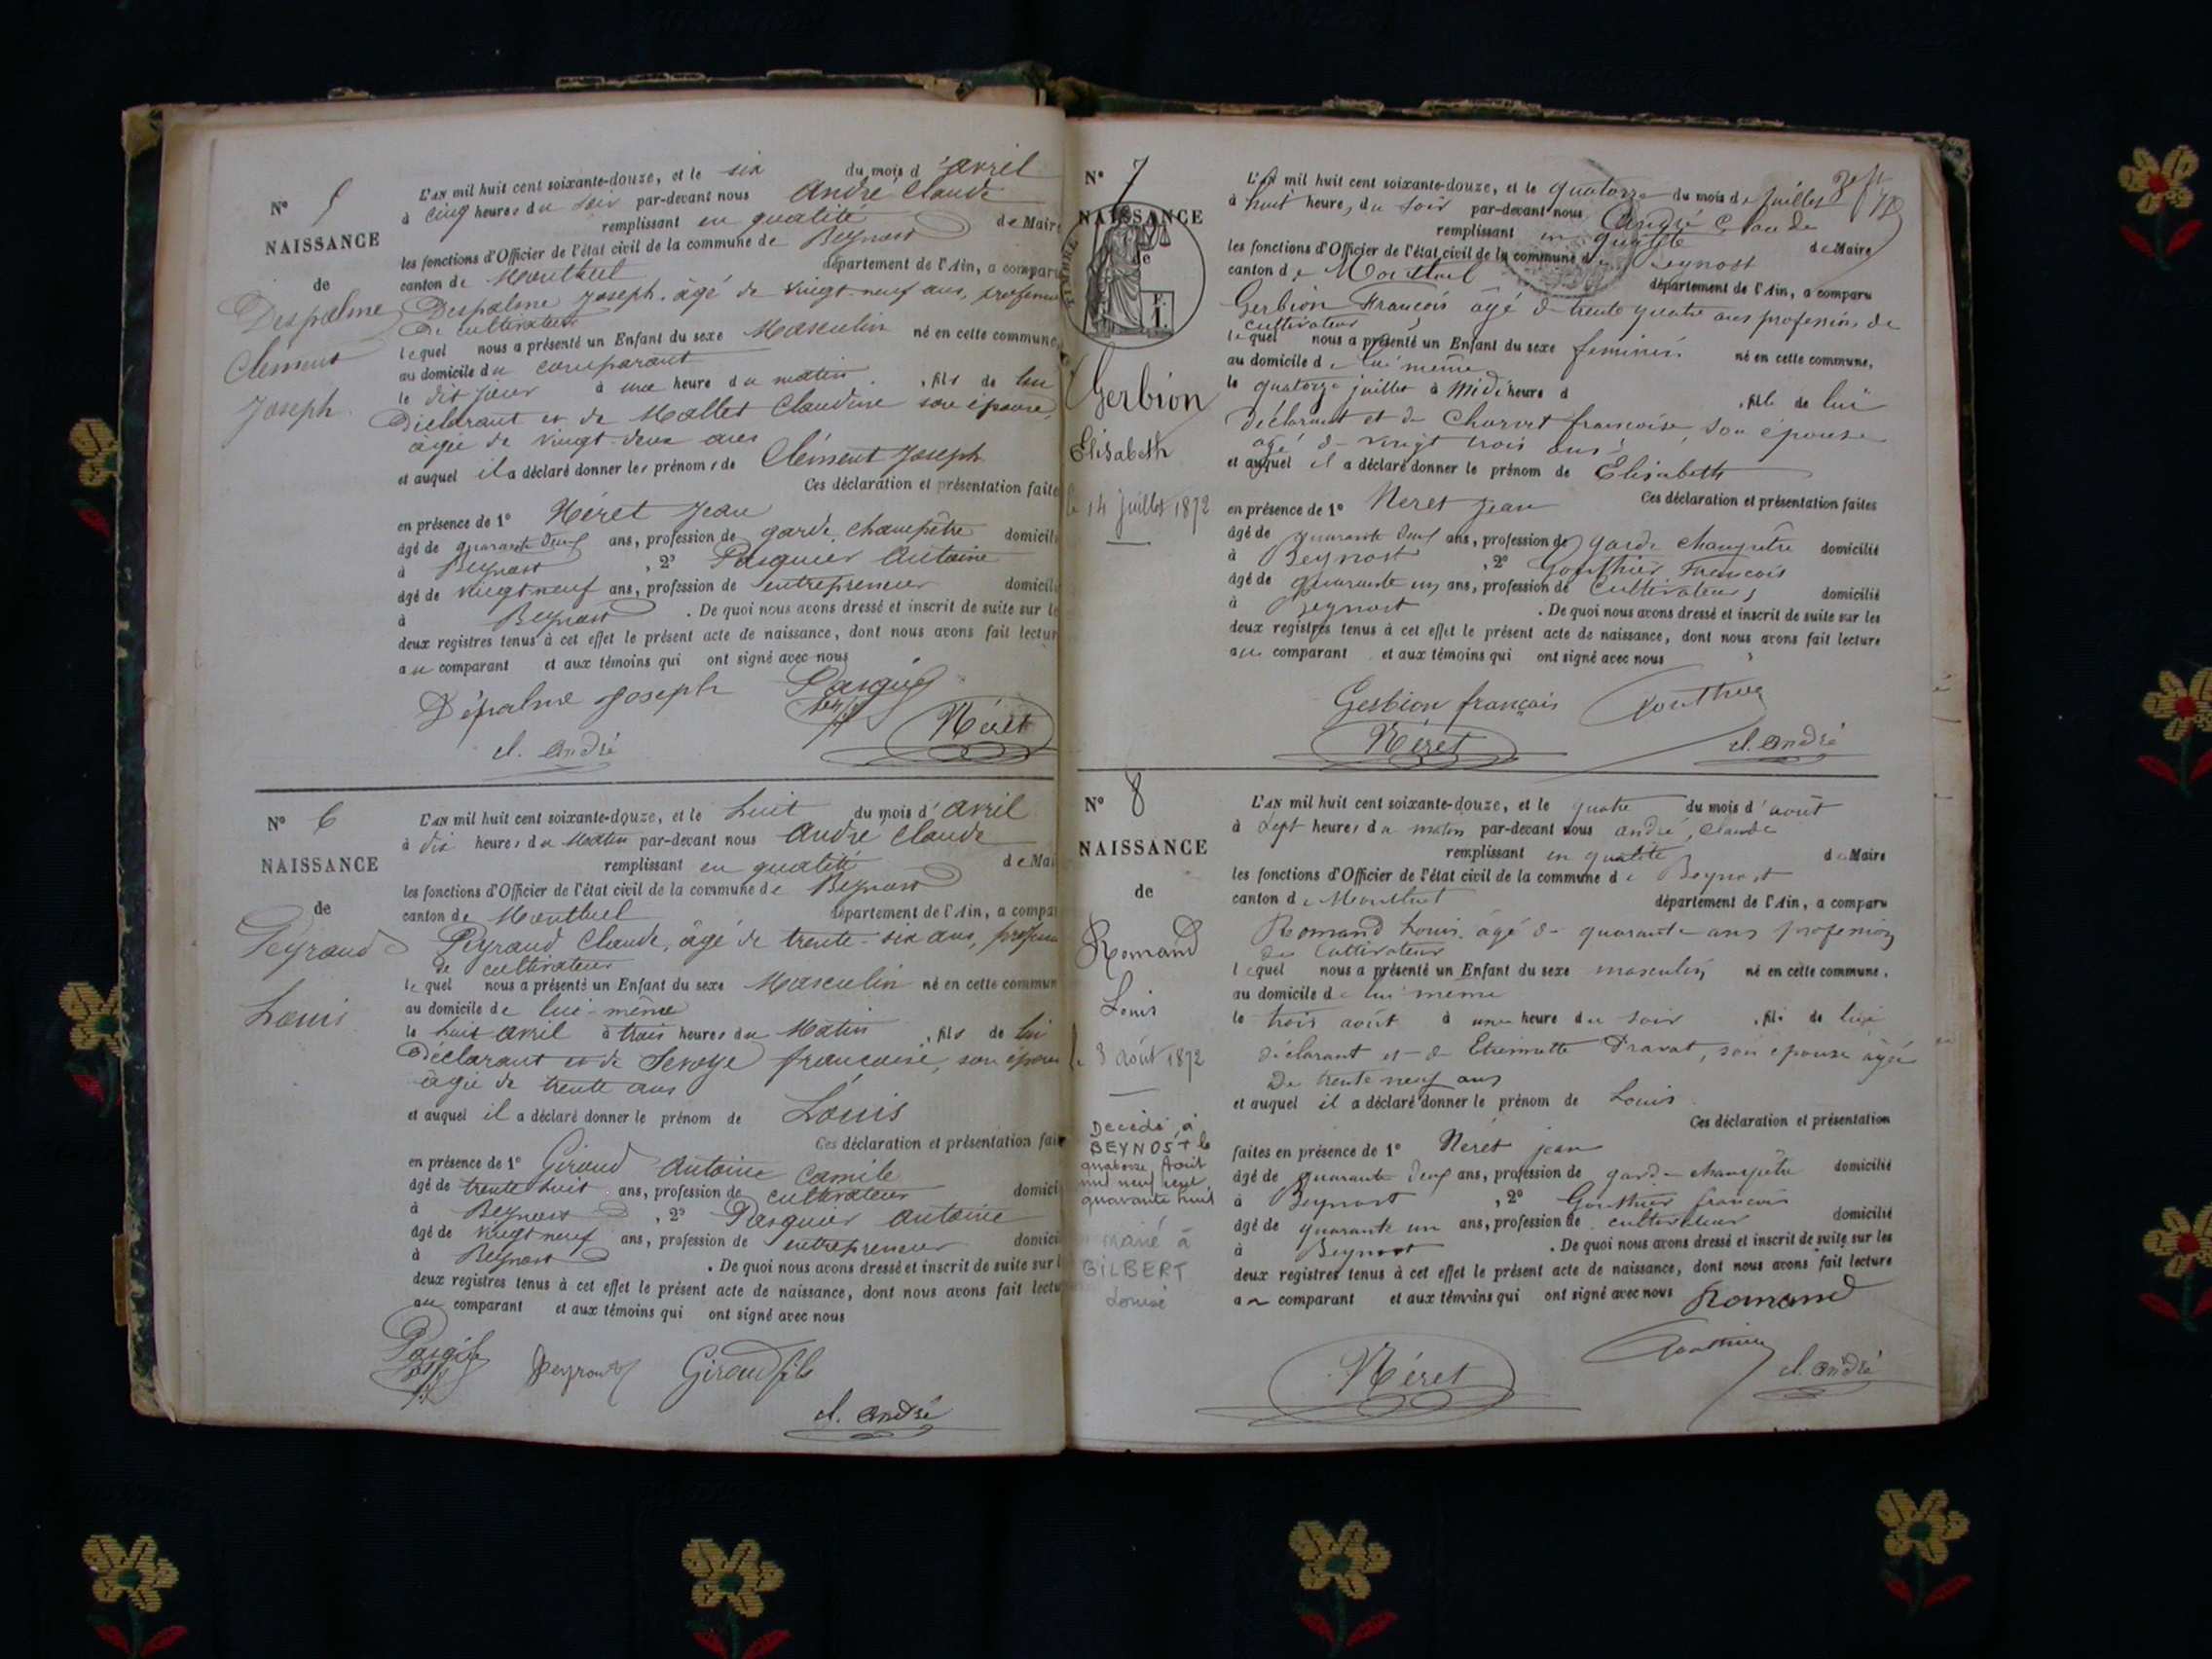 N° 5
NAISSANCE
de
Despalme
Clement
Joseph
L'AN mil huit cent soixante-douze, et le six du mois d'avril
à cinq heures du soir par-devant nous André Claude
remplissant en qualité de Maire
les fonctions d'Officier de l'état civil de la commune de Beynost
canton de Montluel département de l'Ain, a comparu
Despalme Joseph, âgé de vingt-neuf ans, profession
de cultivateur
lequel nous a présenté un Enfant du sexe Masculin né en cette commune
au domicile du comparant
le dit jour à une heure du matin, fils de lui
Déclarant et de Mallet Claudine son épouse
âgée de vingt-deux ans
et auquel il a déclaré donner les prénoms de Clément Joseph
Ces déclaration et présentation faites
en présence de 1° Néret Jean
âgé de quarante deux ans, profession de garde champêtre domicilié
à Beynost, 2° Pasquier Antoine
âgé de vingt neuf ans, profession de entrepreneur domicilié
à Beynost. De quoi nous avons dressé et inscrit de suite sur le
deux registres tenus à cet effet le présent acte de naissance, dont nous avons fait lectur
au comparant et aux témoins qui ont signé avec nous
Dépalme Joseph
Néret
cl. André
N° 6
NAISSANCE
de
Peyraud
Louis
L'AN mil huit cent soixante-douze, et le huit du mois d'avril
à dix heures du Matin par-devant nous André Claude
remplissant en qualité de Mai
les fonctions d'Officier de l'état civil de la commune de Beynost
canton de Montluel département de l'Ain, a compar
Peyraud Claude, âgé de trente-six ans, profession
de cultivateur
lequel nous a présenté un Enfant du sexe Masculin né en cette commun
au domicile de lui-même
le huit avril à trois heures du Matin, fils de lui
Déclarant et de Servoye françoise, son épouse
âgée de trente ans
et auquel il a déclaré donner le prénom de Louis
Ces déclaration et présentation fai
en présence de 1° Giraud Antoine Camile
âgé de trente huit ans, profession de cultivateur domici
à Beynost, 2° Pasquier Antoine
âgé de vingt neuf ans, profession de entrepreneur domici
à Beynost. De quoi nous avons dressé et inscrit de suite sur l
deux registres tenus à cet effet le présent acte de naissance, dont nous avons fait lectu
au comparant et aux témoins qui ont signé avec nous
Peyraud Giraud fils
cl. André
N° 7
NAISSANCE
de
TIMBRE
F.
1.
Gerbion
Elisabeth
le 14 juillet 1872
L'AN mil huit cent soixante-douze, et le quatorze du mois de Juillet
à huit heures du soir par-devant nous André Claude
remplissant en qualité de Maire
les fonctions d'Officier de l'état civil de la commune de Beynost
canton de Montluel département de l'Ain, a comparu
Gerbion François âgé de trente quatre ans profession de
cultivateur
lequel nous a présenté un Enfant du sexe feminin né en cette commune,
au domicile de lui même
le quatorze juillet à Midi heure d, fille de lui
déclarant et de Charvet françoise, son épouse
agé de vingt trois ans
et auquel il a déclaré donner le prénom de Elisabeth
Ces déclaration et présentation faites
en présence de 1° Neret Jean
âgé de quarante deux ans, profession de garde champêtre domicilié
à Beynost, 2° Gonthier François
âgé de quarante un ans, profession de cultivateur domicilié
à Beynost. De quoi nous avons dressé et inscrit de suite sur les
deux registres tenus à cet effet le présent acte de naissance, dont nous avons fait lecture
au comparant et aux témoins qui ont signé avec nous
Gerbion françois Gonthier
Néret cl. André
N° 8
NAISSANCE
de
Romand
Louis
le 3 août 1872
Décédé à
BEYNOST le
quatorze Août
mil neuf cent
quarante huit
marié à
GILBERT
Louise
L'AN mil huit cent soixante-douze, et le quatre du mois d'août
à sept heures du matin par-devant nous andré, Claude
remplissant en qualité de Maire
les fonctions d'Officier de l'état civil de la commune de Beynost
canton de Montluel département de l'Ain, a comparu
Romand Louis, âgé de quarante ans profession
de Cultivateur
lequel nous a présenté un Enfant du sexe masculin né en cette commune,
au domicile de lui même
le trois août à une heure du soir, fils de lui
déclarant et de Etiennette Pravat, son épouse âgée
De trente neuf ans
et auquel il a déclaré donner le prénom de Louis
Ces déclaration et présentation
faites en présence de 1° Néret jean
âgé de quarante deux ans, profession de garde-champêtre domicilié
à Beynost, 2° Gonthier françois
âgé de quarante un ans, profession de cultivateur domicilié
à Beynost. De quoi nous avons dressé et inscrit de suite sur les
deux registres tenus à cet effet le présent acte de naissance, dont nous avons fait lecture
au comparant et aux témoins qui ont signé avec nous Romand
Gonthier
Néret cl. André